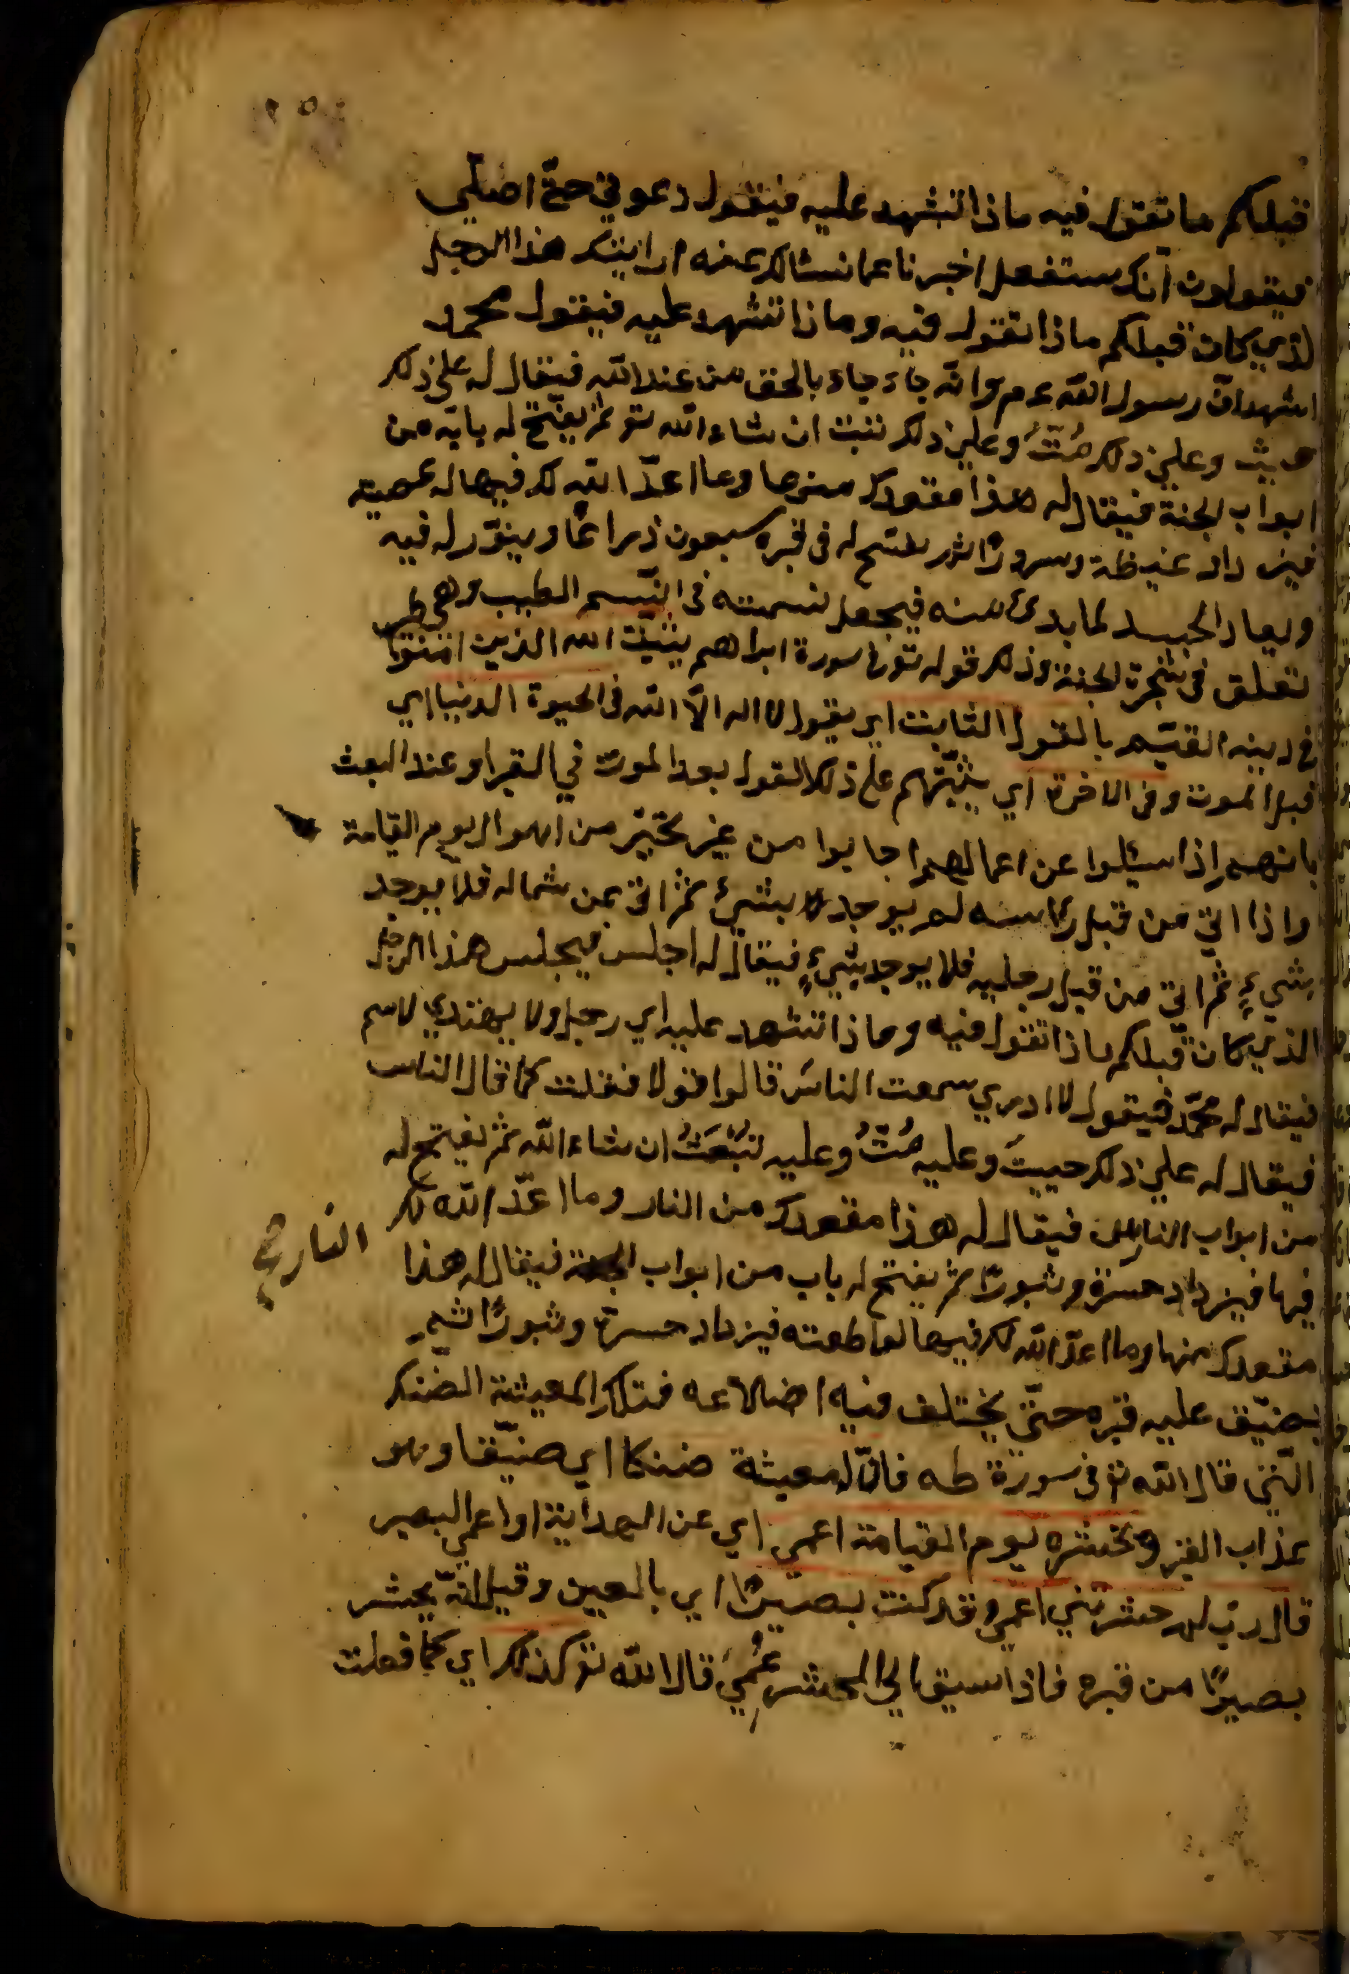 قبلكم ما تقول فيه ماذا تشهد عليه فيقول دعوني حتّى اصلّي
فيقولون انّك ستفعل اخبرنا عما نسئالك عنه ارايتك هذا الرجل
الذي كان قبلكم ماذا تقول فيه وماذا تشهد عليه فيقول محمد
اشهد انّ رسول الله عم وانّه جاء جاء بالحق من عند الله فيقال له على ذلك
حييت وعلى ذلك مُتَّ وعلى ذلك تبعث ان شاء الله تع ثم يفتح له باب من
ابواب الجنة فيقال له هذا مقعدك منها وما اعدّ الله لك فيها لو عصيته
فيزداد غبطة وسرورًا ثم يفتح له في قبره سبعون ذراعًا وينوّر له فيه
ويعاد الجسد لما بدئ منه فيجعل نسمته في النّسم الطيب وهي طير
تعلق في شجرة الجنة وذلك قوله تع في سورة ابراهيم يثبّت الله الذين امنوا
في دينه القيّم بالقول الثابت اي يقول لا اله الّا الله في الحيوة الدنيا اي
قبل الموت وفي الاخرة اي يثبّتهم على ذلك القول بعد الموت في القبر او عند البعث
بانهم إذا سئلوا عن اعمالهم اجابوا من غير تحيّر من اهوال يوم القيامة
واذا اتي من قبل راسه لم يوجد بشيء ثم اتي عن شماله فلا يوجد
بشيءٍ ثم اتي من قبل رجليه فلا يوجد بشيءٍ فيقال له اجلس فيجلس هذا الرجل
الذي كان قبلكم ماذا تقول فيه وماذا تشهد عليه اي رجل ولا يهتدي لاسم
فيقال له محمّد فيقول لا ادري سمعت الناسَ قالوا قولا فقلت كما قال الناس
فيقال له على ذلك حييتَ وعليه مُتَّ وعليه تُبْعَثُ ان شاء الله ثم يفتح له
من ابواب النار فيقال له هذا مقعدك من النار وما اعدّ الله لك
فيها فيزداد حسرة وثبورًا ثم يفتح له باب من ابواب الجنة فيقال له هذا
النار صح
مقعدك منها وما اعدّ الله لك فيها لو اطعته فيزداد حسرة وثبورًا ثم
يضيّق عليه قبره حتّى يختلف فيه اضلاعه فتلك المعيشة الضنك
الّتي قال الله تع في سورة طه فانّ له معيشة ضنكا اي ضيّقا وهو
عذاب القبر ونحشره يوم القيامة اعمى اي عن الهداية او اعمى البصر
قال ربّ لم حشرتني اعمى وقد كنت بصيرًا اي بالعين وقيل انّه يحشر
بصيرًا من قبره فاذا سيق الى المحشر عُمِيَ قال الله تع كذلك اي كما فعلت